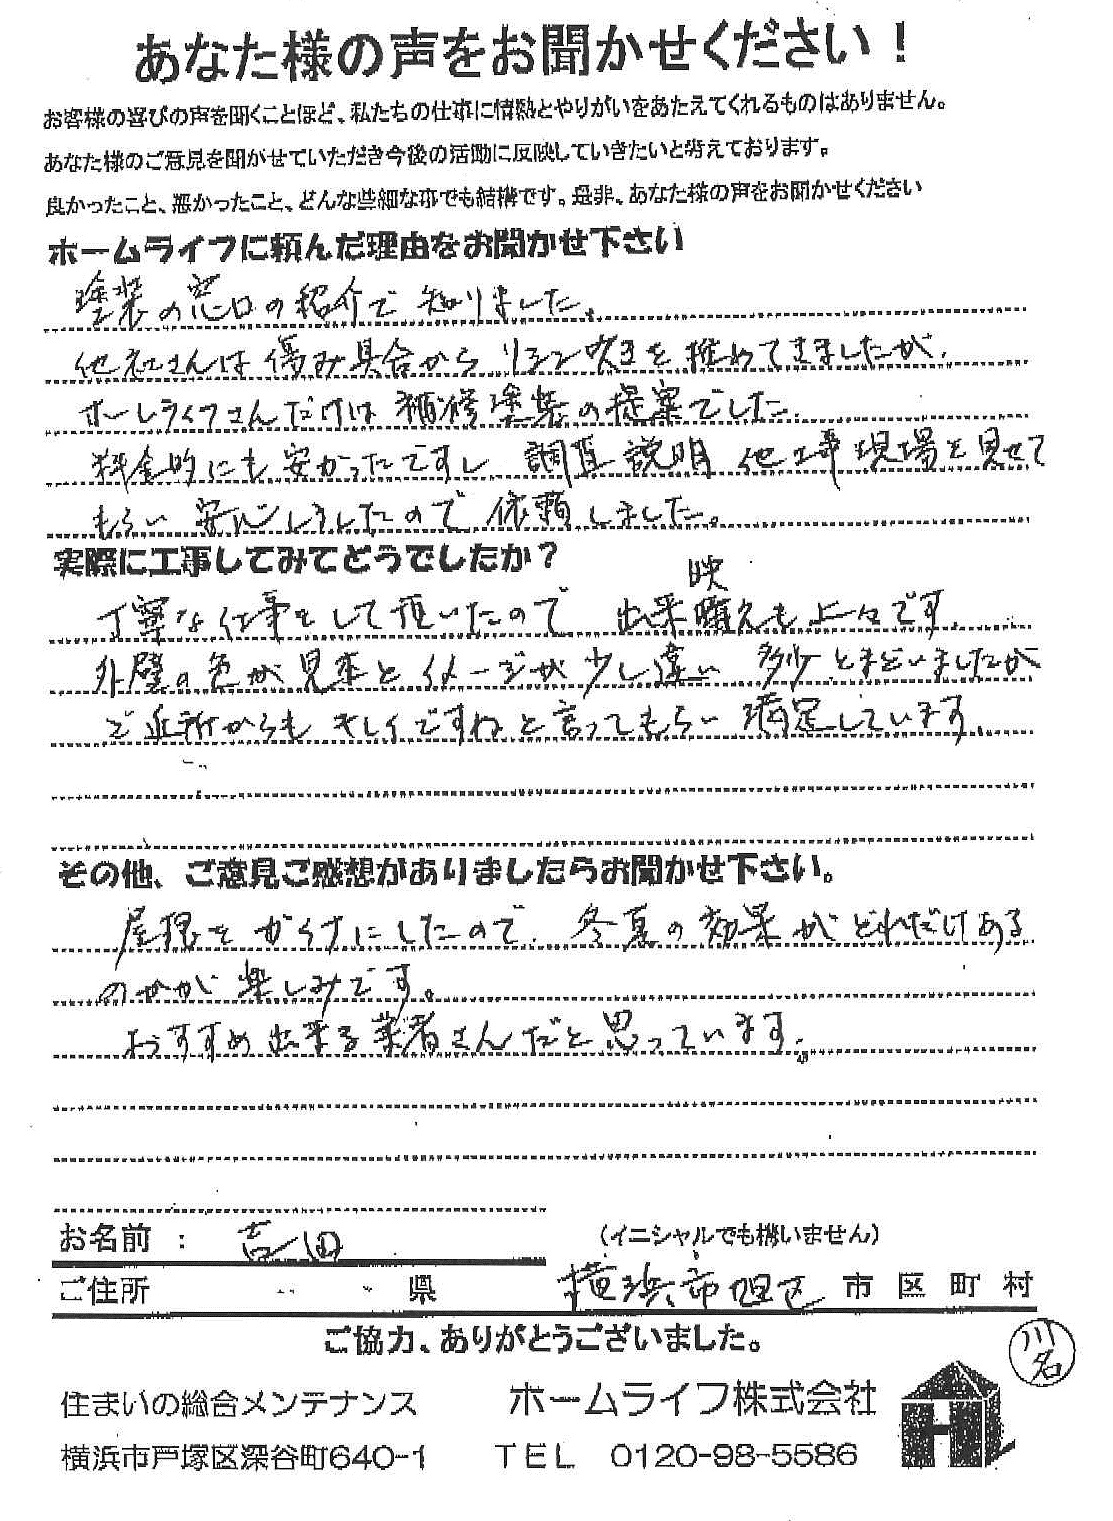 あなた様の声をお聞かせください！
お客様の喜びの声を聞くことほど、私たちの仕事に情熱とやりがいをあたえてくれるものはありません。
あなた様のご意見を聞かせていただき今後の活動に反映していきたいと考えております。
良かったこと、悪かったこと、どんな些細な事でも結構です。是非、あなた様の声をお聞かせください
ホームライフに頼んだ理由をお聞かせ下さい
塗装の窓口の紹介で知りました。
他社さんは傷み具合からリシン吹きを推めてきましたが、
ホームライフさんだけは補修塗装の提案でした。
料金的にも安かったですし 調査説明 他工事現場を見せて
もらい 安心しましたので 依頼しました。
実際に工事してみてどうでしたか？
映
丁寧な仕事をして頂いたので 出来 えも上々です。
外壁の色が見本とイメージが少し違い 多少とまどいましたが
ご近所からもキレイですねと言ってもらい 満足しています。
その他、ご意見ご感想がありましたらお聞かせ下さい。
屋根をガイナにしたので、冬夏の効果がどれだけある
のかが楽しみです。
おすすめ出来る業者さんだと思っています。
お名前 ： 吉田 （イニシャルでも構いません）
ご住所 県 横浜市旭区 市 区 町 村
ご協力、ありがとうございました。
川名
住まいの総合メンテナンス ホームライフ株式会社
横浜市戸塚区深谷町640-1 TEL 0120-98-5586
HL